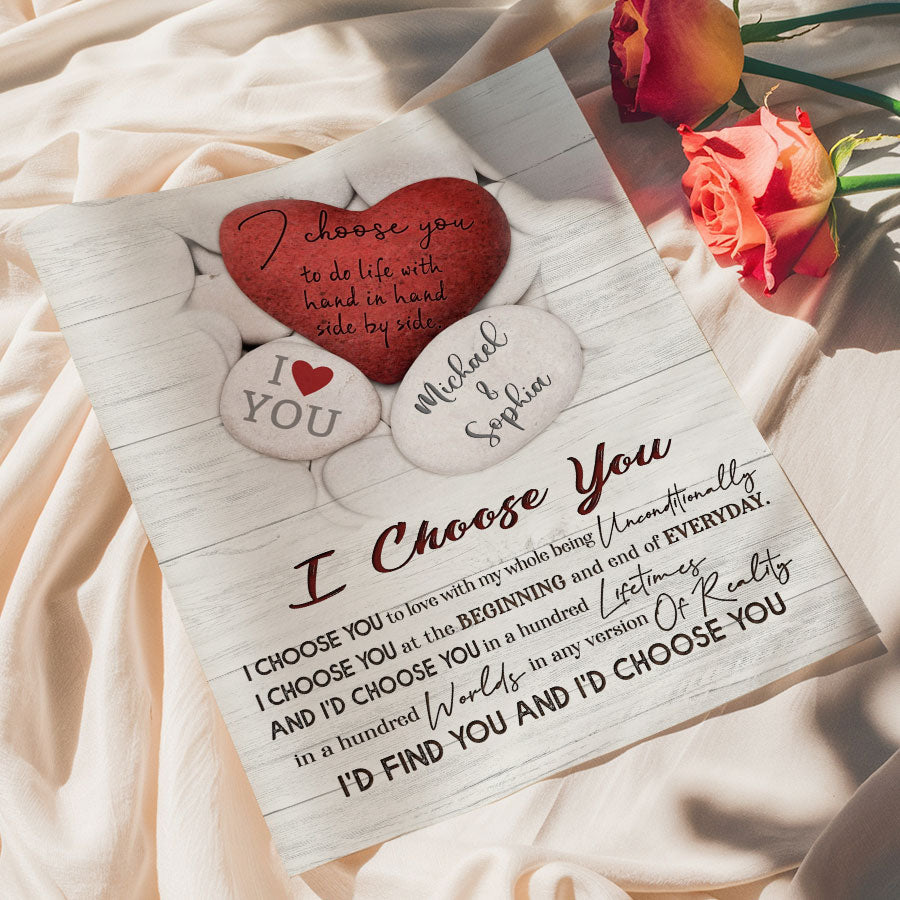 I choose you
to do life with
hand in hand
side by side.
I ♥
YOU
Michael
&
Sophia
I Choose You
I CHOOSE YOU to love with my whole being Unconditionally
I CHOOSE YOU at the BEGINNING and end of EVERYDAY.
AND I'D CHOOSE YOU in a hundred Lifetimes
in a hundred Worlds in any version Of Reality
I'D FIND YOU AND I'D CHOOSE YOU